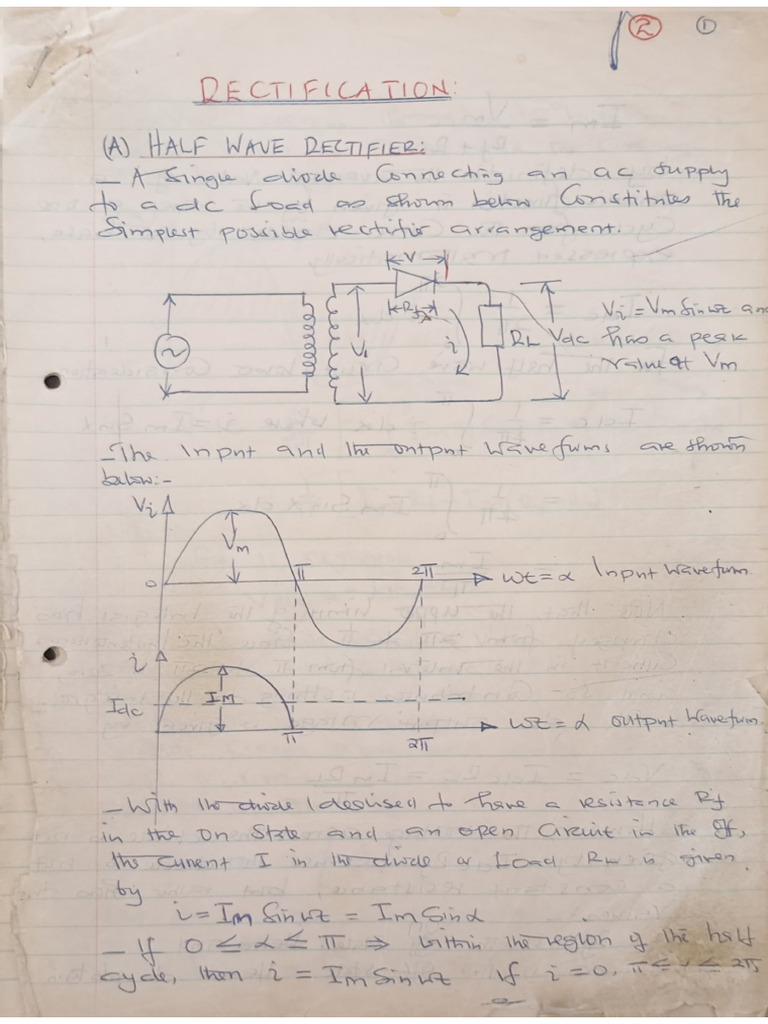 2 1
RECTIFICATION:
(A) HALF WAVE RECTIFIER:
- A Single diode Connecting an ac supply
to a dc Load as shown below Constitutes the
Simplest possible rectifier arrangement.
V
Rf
i
Vi
RL
Vdc
Vi = Vm Sin wt and
has a peak
value of Vm
- The Input and the output Waveforms are shown
below:-
Vi
Vm
0
π
2π
wt = α Input Waveform
i
Idc
Im
π
2π
wt = α output Waveform
- With the diode Idealised to have a resistance Rf
in the On State and an open Circuit in the Off,
the current I in the diode or Load RL is given
by
i = Im Sin wt = Im Sin α
- If 0 ≤ α ≤ π ⇒ within the region of the half
cycle, then i = Im Sin wt if i = 0, π ≤ α ≤ 2π